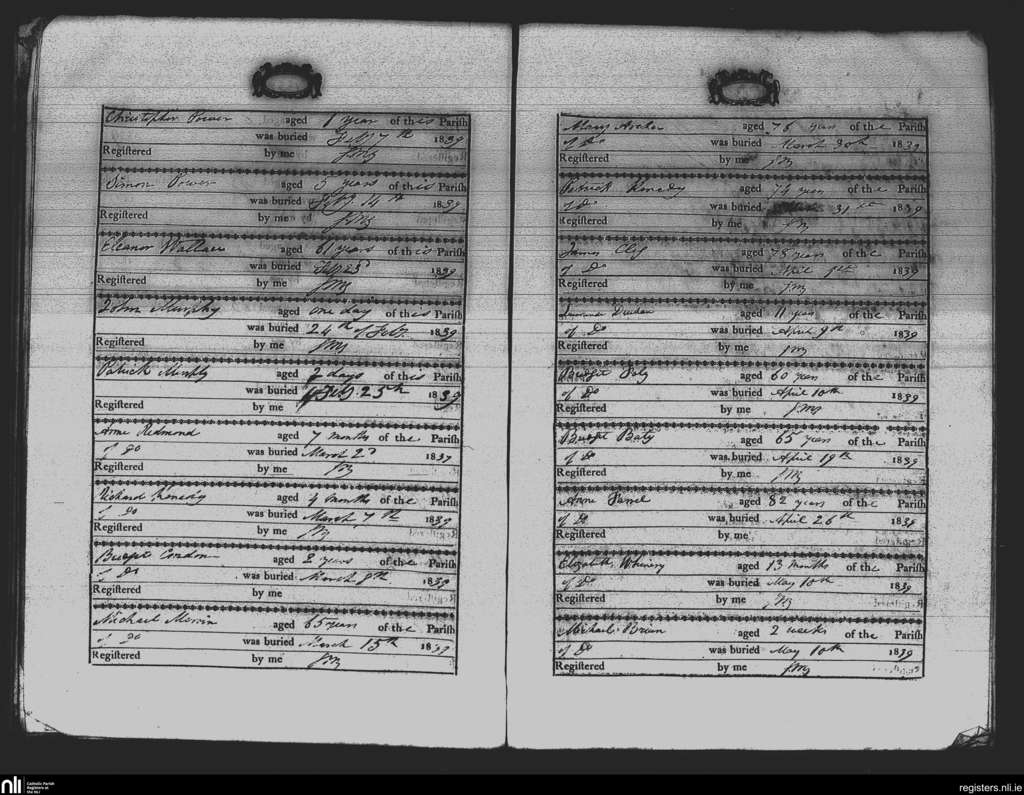 Christopher Power aged 1 year of this Parish
was buried Feby 7th 1839
Registered by me
Simon Power aged 5 years of this Parish
was buried Feby 14th 1839
Registered by me
Eleanor Wallace aged 61 years of this Parish
was buried Feby 23d 1839
Registered by me
John Murphy aged one day of this Parish
was buried 24th of Feby 1839
Registered by me
Patrick Murphy aged 2 days of this Parish
was buried Feby 25th 1839
Registered by me
Anne Redmond aged 7 months of the Parish
of Do was buried March 2d 1839
Registered by me
Richard Kenedy aged 4 months of the Parish
of Do was buried March 7th 1839
Registered by me
Condon aged 2 years of the Parish
of Do was buried March 8th 1839
Registered by me
Michael aged 65 years of the Parish
of Do was buried March 15th 1839
Registered by me
Mary Archer aged 76 years of the Parish
of Do was buried March 30th 1839
Registered by me
Patrick Kenedy aged 74 years of the Parish
of Do was buried 31st 1839
Registered by me
James aged 78 years of the Parish
of Do was buried April 1st 1839
Registered by me
aged 11 years of the Parish
of Do was buried April 9th 1839
Registered by me
Bridget Daly aged 60 years of the Parish
of Do was buried April 10th 1839
Registered by me
Bridget aged 65 years of the Parish
of Do was buried April 19th 1839
Registered by me
Anne aged 82 years of the Parish
of Do was buried April 26th 1839
Registered by me
Elizabeth aged 13 months of the Parish
of Do was buried May 10th 1839
Registered by me
Michael aged 2 weeks of the Parish
of Do was buried May 10th 1839
Registered by me
nli Catholic Parish
Registers at
the NLI
registers.nli.ie